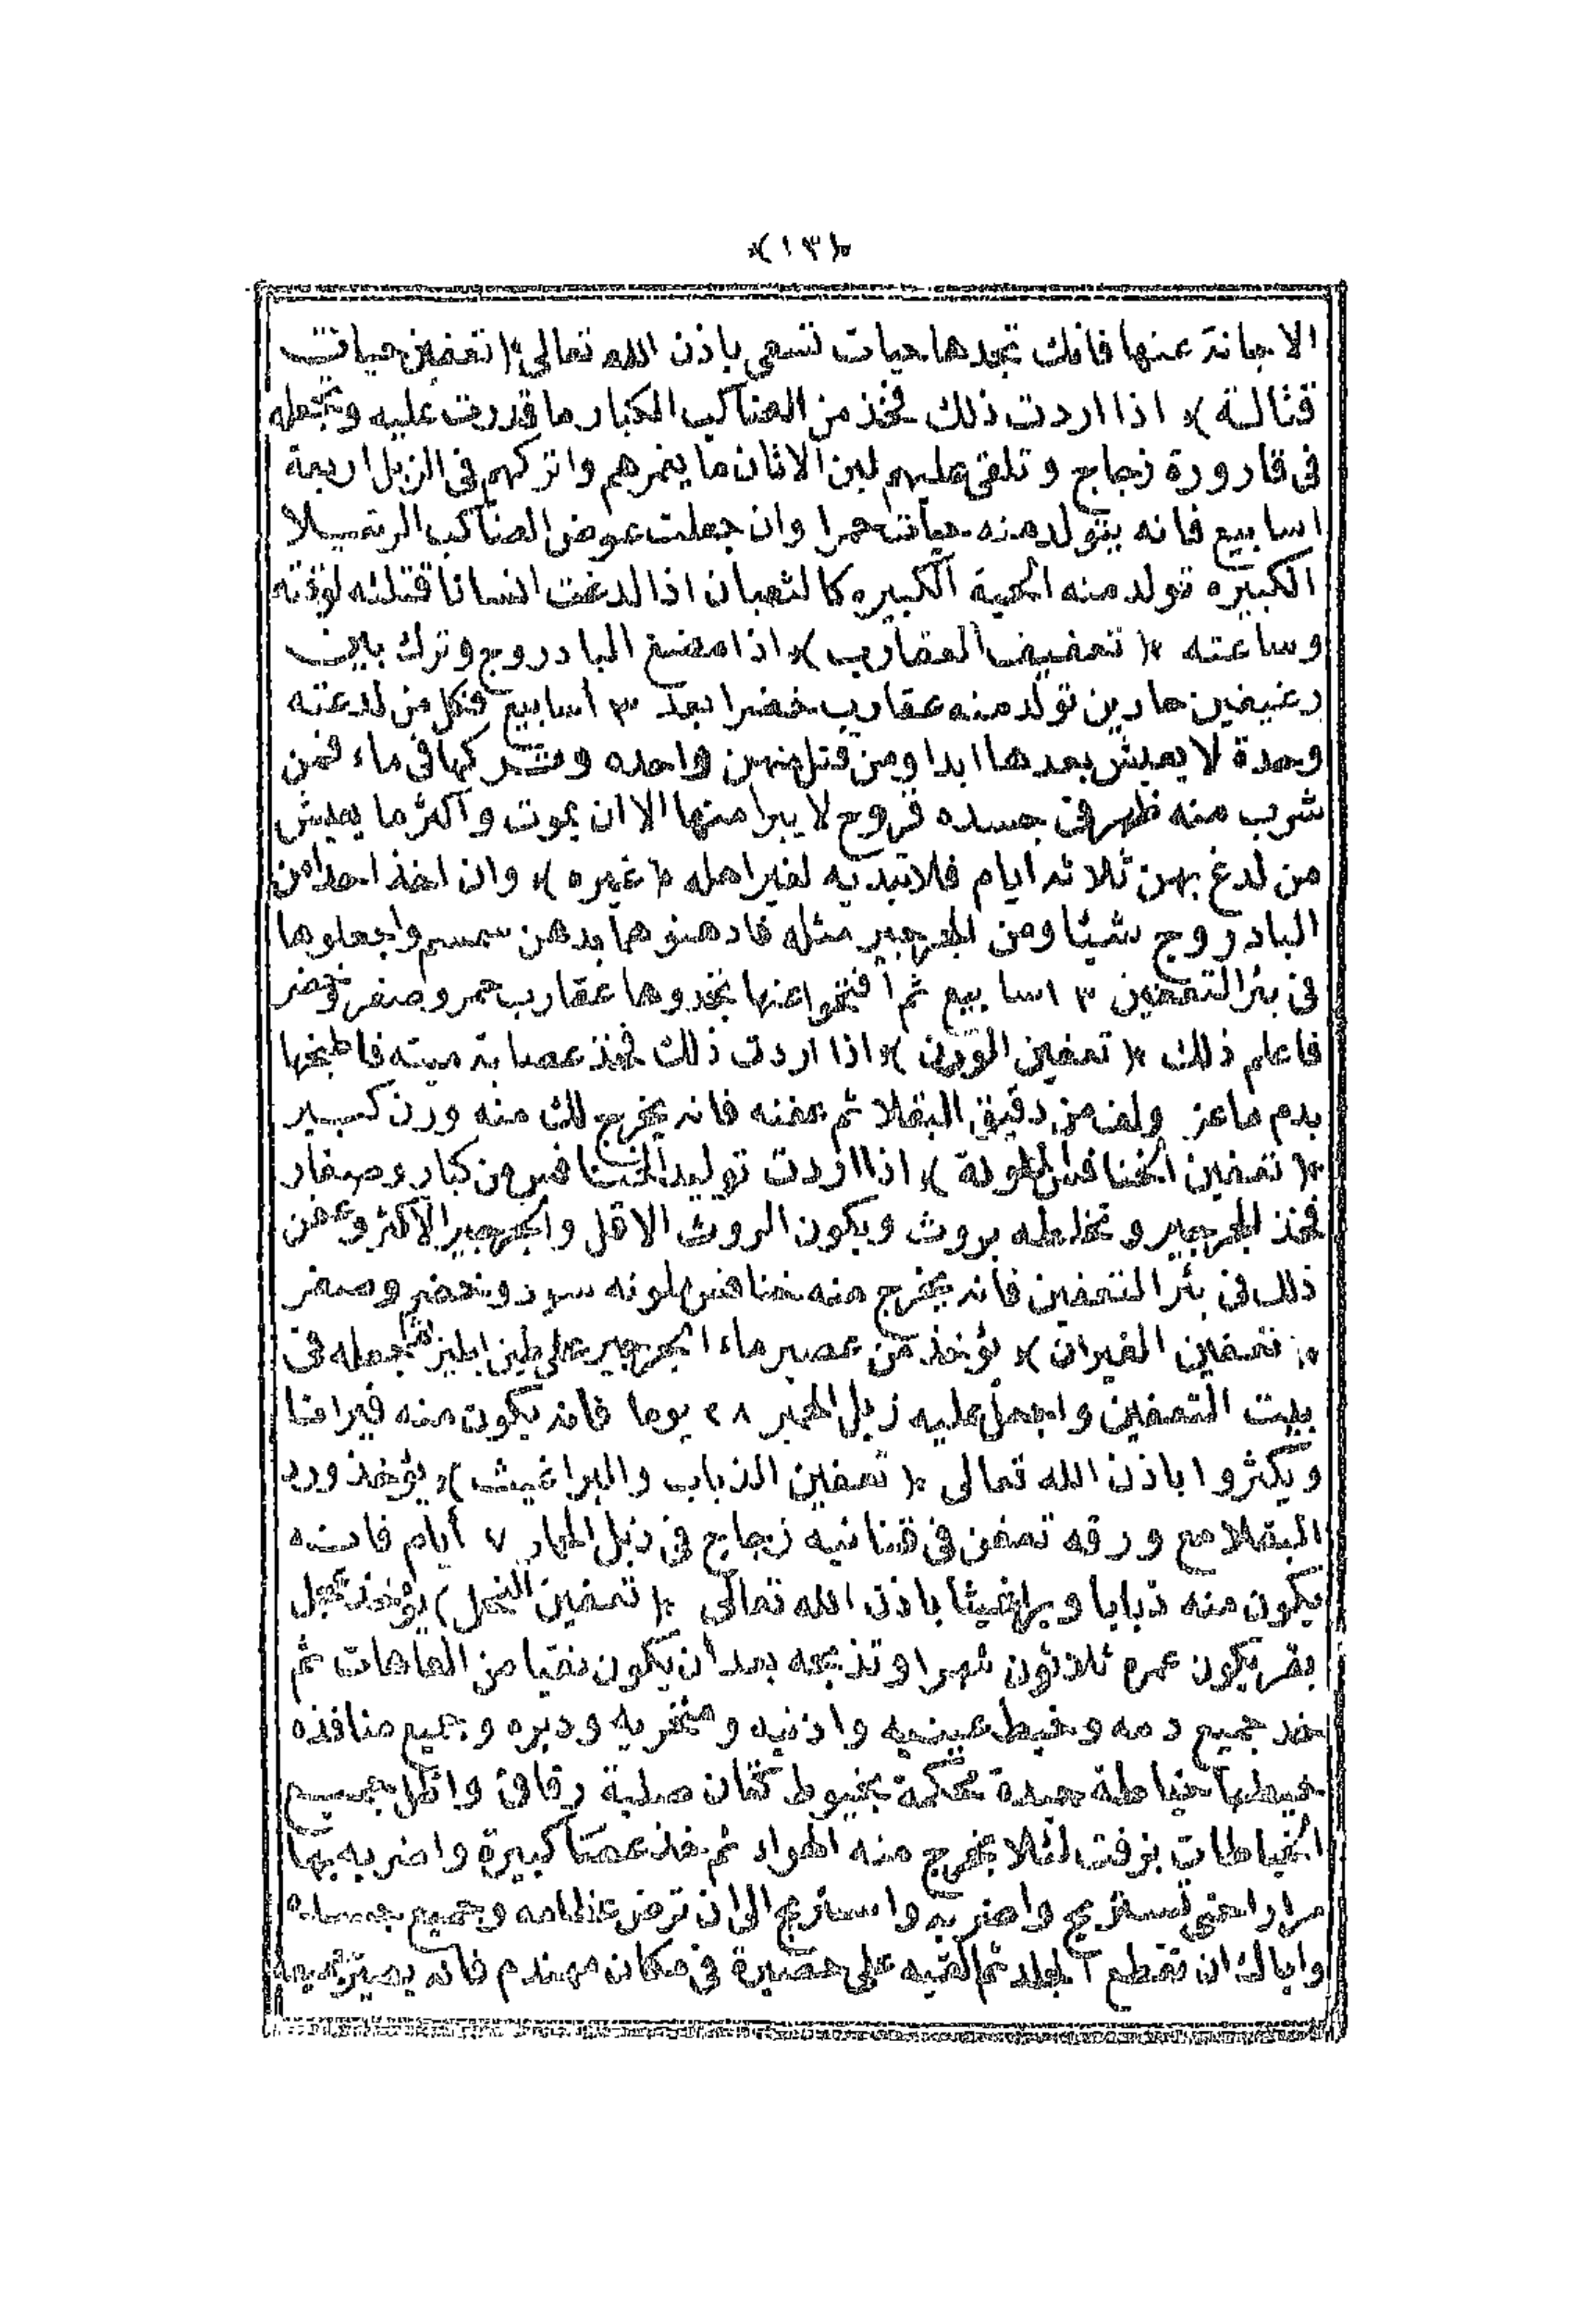 ﴿١٣﴾
الاجانة عنها فانك تجدها حيات تسعى باذن الله تعالى ﴿تعفين حيات
قتالة﴾ اذا اردت ذلك فخذ من العناكب الكبار ما قدرت عليه وتجعله
فى قارورة زجاج وتلقى عليهم لبن الاتان ما يغمرهم واتركهم فى الزبل اربعة
اسابيع فانه يتولد منه حيات حمرا وان جعلت عوض العناكب الرتيلا
الكبيره تولد منه الحية الكبيره كالثعبان اذا لدغت انسانا قتلته لوقته
وساعته ﴿تعفيف العقارب﴾ اذا مضغ البادروج وترك بين
رغيفين حارين تولد منه عقارب خضرا بعد ٣ أسابيع فكل من لدغته
وحدة لا يعيش بعدها ابدا ومن قتل منهن واحده وتركها فى ماء فمن
شرب منه ظهر فى جسده قروح لا يبرا منها الا ان يموت واكثر ما يعيش
من لدغ بهن ثلاثة أيام فلا تبديه لغير اهله ﴿غيره﴾ وان اخذ احدا من
البادروج شيئا ومن الجرجير مثله فادهنوها بدهن سمسم واجعلوها
فى بئر التعفين ٣ اسابيع ثم أفتحوا عنها تجدوها عقارب حمر وصفر وخضر
فاعلم ذلك ﴿تعفين الورن﴾ اذا اردت ذلك فخذ عصابة ميته فاطبخها
بدم ماعز ولف من دقيق البقلا ثم عفنه فانه يخرج لك منه ورن كبير
﴿تعفين الخنافس الملونة﴾ اذا اردت توليد الخنافس من كبار وصغار
فخذ الجرجير وتخلطه بروث ويكون الروث الاقل والجرجير الاكثر وعفن
ذلك فى بئر التعفين فانه يخرج منه خنافس ملونه سود وخضر وصفر
﴿تعفين الفيران﴾ يؤخذ من عصير ماء الجرجير على طين ابليز ثم تجعله فى
بيت التعفين واجعل عليه زبل الحمير ٢٨ يوما فانه يكون منه فيرانا
ويكثروا باذن الله تعالى ﴿تعفين الذباب والبراغيث﴾ يؤخذ ورد
البقلا مع ورقه تعفن فى قنانيه زجاج فى زبل الحمار ٧ أيام فانه
يكون منه ذبابا وبراغيثا باذن الله تعالى ﴿تعفين النحل﴾ يؤخذ عجل
بقر يكون عمره ثلاثون شهرا وتذبحه بعد أن يكون نقيا من العاهات ثم
خد جميع دمه وخيط عينيه واذنيه ومنخريه ودبره وجميع منافذه
خيطها خياطة جيدة محكمة بخيوط كتان صلبة رقاق واطل جميع
الخياطات بزفت لئلا يخرج منه الهواء ثم خذ عصا كبيرة واضربه بها
مرارا حتى تستريح واضربه واستريح الى ان ترض عظامه وجميع جسده
واياك ان تقطع الجلد ثم القيه على حصيرة فى مكان مهندم فانه يصير جميعه